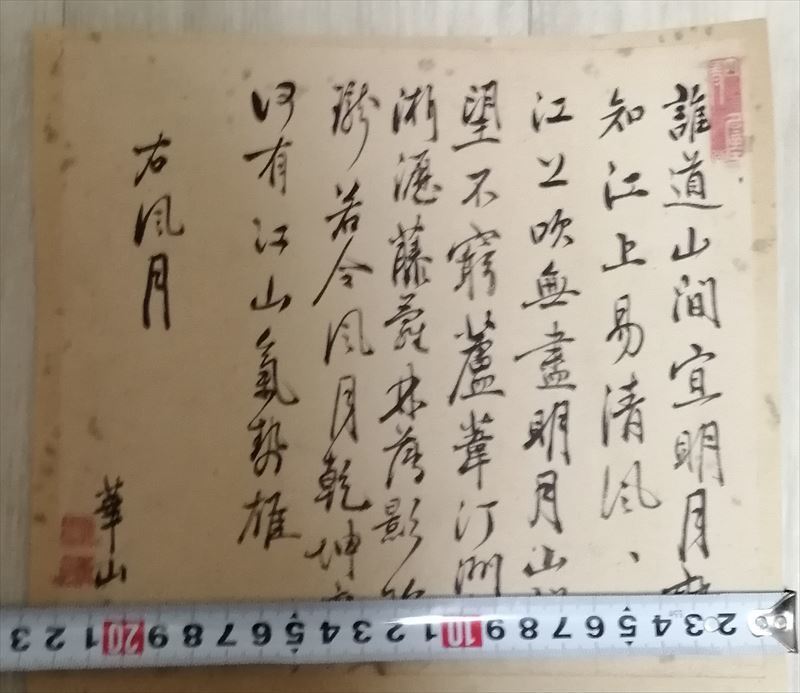 誰道山間宜明月
知江上易清風、
江上吹無盡明月山
望不窮蘆葦汀洲
淅瀝藤蘿林薄影
瓏若令風月乾坤
何有江山氣勢雄
右風月
華山
2 3 4 5 6 7 8 9 10 1 2 3 4 5 6 7 8 9 20 1 2 3